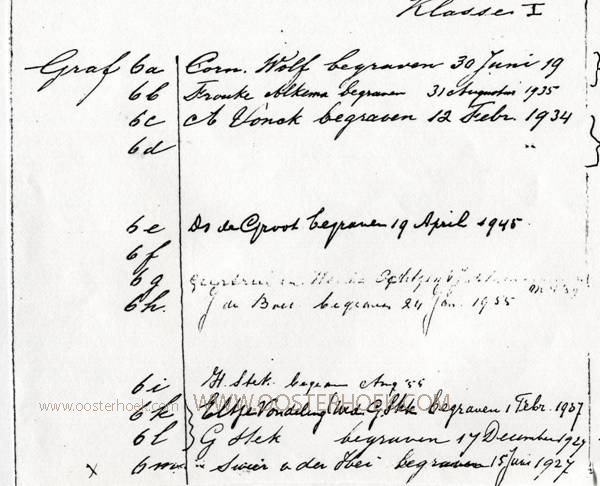 Klasse I
Graf 6a Corn. Wolf begraven 30 Juni 19
6b Frouke Alkema begraven 31 Augustus 1935
6c A Vonck begraven 12 Febr. 1934
6d "
6e Ds de Groot begraven 19 April 1945.
6f
6g
6h. J de Boer begraven 24 Jan. 1955
6i H. Stek begraven Aug '55
www.oosterhoek.com WWW.OOSTERHOEK.COM
6k Eltje Vondeling Wed G Stek begraven 1 Febr. 1937
6l G Stek begraven 17 December 1927
x 6m Swier v der Hei begraven 15 Juni 1927